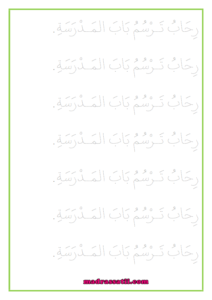 رِحَابُ تَرْسُمُ بَابَ المَدْرَسَةِ.
رِحَابُ تَرْسُمُ بَابَ المَدْرَسَةِ.
رِحَابُ تَرْسُمُ بَابَ المَدْرَسَةِ.
رِحَابُ تَرْسُمُ بَابَ المَدْرَسَةِ.
رِحَابُ تَرْسُمُ بَابَ المَدْرَسَةِ.
رِحَابُ تَرْسُمُ بَابَ المَدْرَسَةِ.
رِحَابُ تَرْسُمُ بَابَ المَدْرَسَةِ.
madrassatii.com